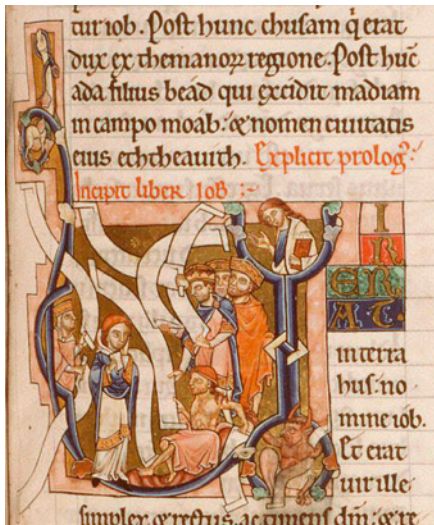 tur iob. Post hunc chusam q̄ erat
dux ex themanoꝝ regione. Post hūc
ada filius bead qui excidit madiam
in campo moab. & nomen ciuitatis
eius echtheauith. Explicit prologꝰ.
Incipit liber IOB :-
VIR
ERAT
in terra
hus. no
mine iob.
Et erat
uir ille
simplex & rectus. ac timens dm̄. & re